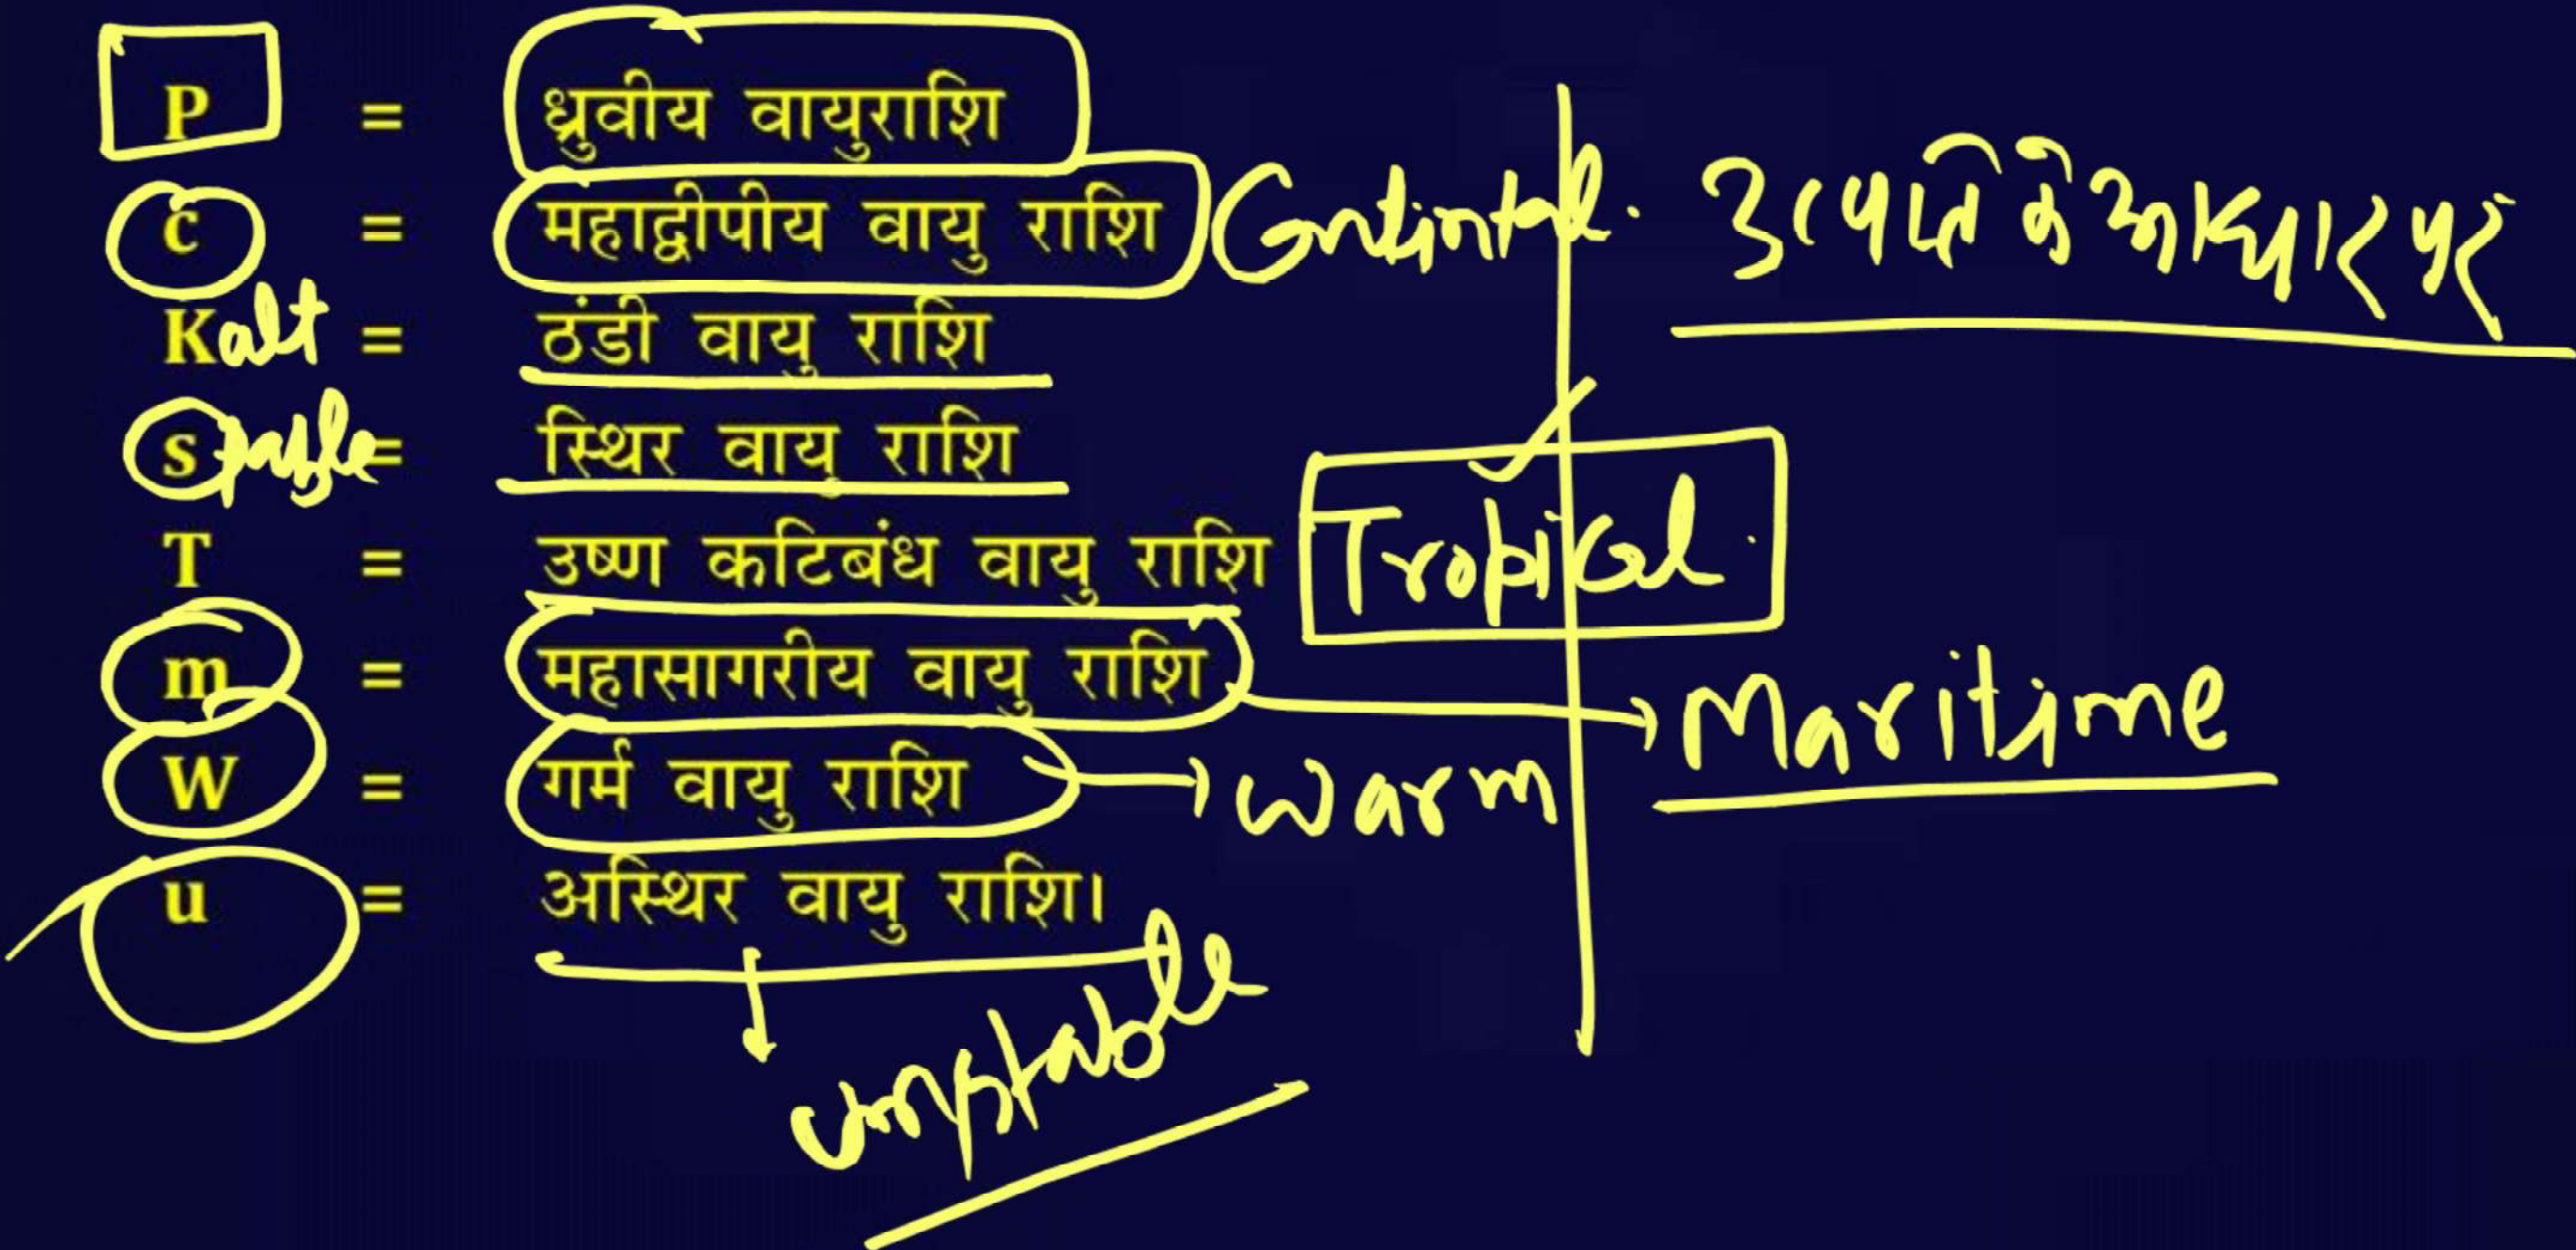 P = ध्रुवीय वायुराशि
c = महाद्वीपीय वायु राशि उत्पत्ति के आधार पर
Kalt = ठंडी वायु राशि
s = स्थिर वायु राशि
T = उष्ण कटिबंध वायु राशि Tropical
m = महासागरीय वायु राशि → Maritime
W = गर्म वायु राशि → warm
u = अस्थिर वायु राशि।
unstable